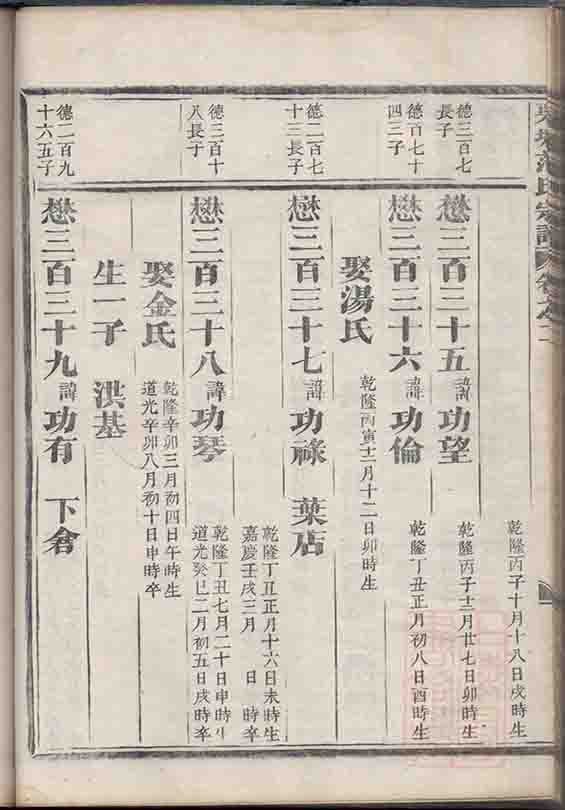 范氏宗譜 卷之二
乾隆丙子十月十八日戌時生
德三百七
長子
懋三百三十五 諱功望
乾隆丙子十二月廿七日卯時生
德二百七十
四三子
懋三百三十六 諱功倫
乾隆丁丑正月初八日酉時生
娶湯氏
乾隆丙寅十二月十二日卯時生
德二百七
十三長子
懋三百三十七 諱功祿 葉店
乾隆丁丑正月十六日未時生
嘉慶壬戌三月 日 時卒
德三百十
八長子
懋三百三十八 諱功琴
乾隆丁丑七月二十日申時生
道光癸巳二月初五日戌時卒
娶金氏
乾隆辛卯三月初四日午時生
道光辛卯八月初十日申時卒
生一子 洪基
德二百九
十六五子
懋三百三十九 諱功有 下倉